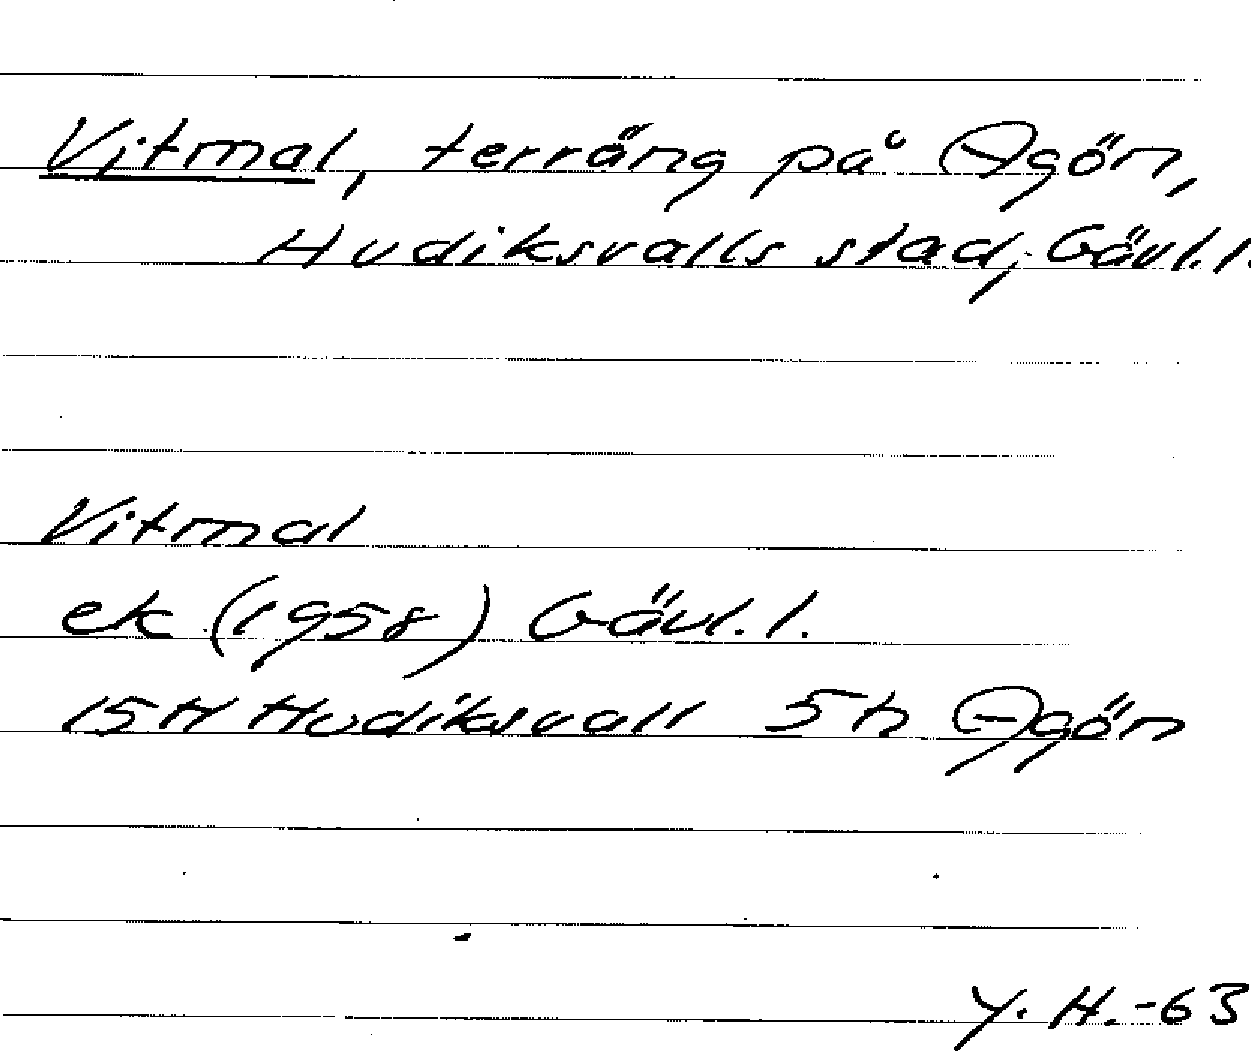 Vitmal, terräng på Agön,
Hudiksvalls stad, Gävl.l.
Vitmal
ek (1958) Gävl.l.
15H Hudiksvall 5h Agön
Y.H.-63